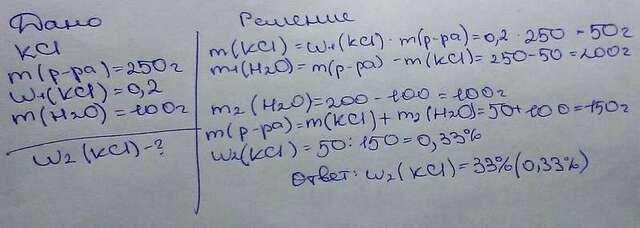 Дано
KCl
m(р-ра)=250г
w1(KCl)=0,2
m(H2O)=100г
w2(KCl)-?
Решение
m(KCl)=w1(KCl)·m(р-ра)=0,2·250=50г
m1(H2O)=m(р-ра)-m(KCl)=250-50=200г
m2(H2O)=200-100=100г
m(р-ра)=m(KCl)+m2(H2O)=50+100=150г
w2(KCl)=50:150=0,33%
Ответ: w2(KCl)=33%(0,33%)